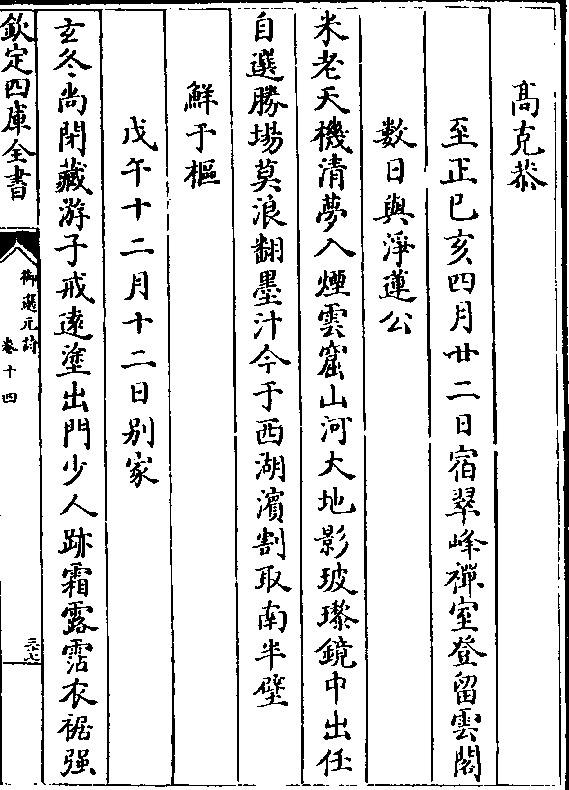 高克恭
至正己亥四月廿二日宿翠峰禪室登留雲閣
數日與淨蓮公
米老天機清夢入煙雲窟山河大地影玻瓈鏡中出任
自選勝場莫浪翻墨汁今于西湖濱割取南半壁
鮮于樞
戊午十二月十二日别家
玄冬尚閉藏游子戒遠塗出門少人跡霜露霑衣裾强
欽定四庫全書
御選元詩
卷十四